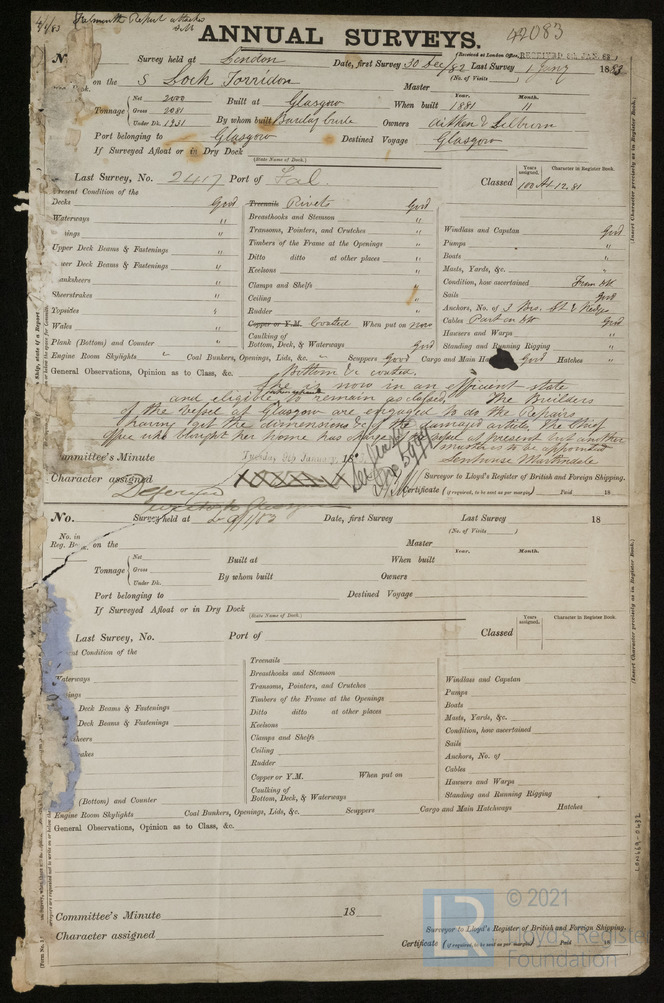 Falmouth Report attached
42083
ANNUAL SURVEYS.
(Received at London Office, RECEIVED JAN. 83)
Survey held at London Date, first Survey 30 Dec/82 Last Survey Jany 1883
(No. of Visits)
on the S Loch Torridon Master
Tonnage Net 2000 Built at Glasgow When built Year. 1881 Month. 11
Gross 2081
Under Dk. 1931 By whom built Barclay Curle Owners Aitken & Lilburn
Port belonging to Glasgow Destined Voyage Glasgow
If Surveyed Afloat or in Dry Dock
(State Name of Dock.)
Last Survey, No. 2417 Port of Fal Classed Years assigned. 100 Character in Register Book. A1 12.81
Present Condition of the
Decks Good
Waterways "
Upper Deck Beams & Fastenings "
Lower Deck Beams & Fastenings "
Planksheers "
Sheerstrakes "
Topsides "
Wales "
Plank (Bottom) and Counter "
Treenails Rivets Good
Breasthooks and Stemson "
Transoms, Pointers, and Crutches "
Timbers of the Frame at the Openings "
Ditto ditto at other places "
Keelsons "
Clamps and Shelfs "
Ceiling "
Rudder "
Copper or Y.M. Coated When put on now
Caulking of Bottom, Deck, & Waterways Good
Windlass and Capstan Good
Pumps "
Boats "
Masts, Yards, &c. "
Condition, how ascertained From Dk
Sails Good
Anchors, No. of 3 Brs. St & Kedge
Cables Part in Dk Good
Hawsers and Warps "
Standing and Running Rigging "
Engine Room Skylights " Coal Bunkers, Openings, Lids, &c. " Scuppers Good Cargo and Main Hatchways Good Hatches "
General Observations, Opinion as to Class, &c. Bottom &c coated.
She is now in an efficient state
and eligible to remain as classed. The Builders
of the vessel at Glasgow are engaged to do the Repairs
having got the dimensions &c of the damaged articles. The Chief
who brought her home has charge of vessel at present but another
master is to be appointed
Committee's Minute Tuesday 9th January, 18
Character assigned Deferred
Surveyor to Lloyd's Register of British and Foreign Shipping.
Certificate (if required, to be sent as per margin) Paid 18
(Insert Character precisely as in Register Book.)
No. Survey held at Date, first Survey Last Survey 18
(No. of Visits)
No. in
Reg. Book. on the Master
Tonnage Net Built at When built Year. Month.
Gross
Under Dk. By whom built Owners
Port belonging to Destined Voyage
If Surveyed Afloat or in Dry Dock
(State Name of Dock.)
Last Survey, No. Port of Classed Years assigned. Character in Register Book.
Condition of the
Waterways
Deck Beams & Fastenings
Deck Beams & Fastenings
(Bottom) and Counter
Treenails
Breasthooks and Stemson
Transoms, Pointers, and Crutches
Timbers of the Frame at the Openings
Ditto ditto at other places
Keelsons
Clamps and Shelfs
Ceiling
Rudder
Copper or Y.M. When put on
Caulking of
Bottom, Deck, & Waterways
Windlass and Capstan
Pumps
Boats
Masts, Yards, &c.
Condition, how ascertained
Sails
Anchors, No. of
Cables
Hawsers and Warps
Standing and Running Rigging
Engine Room Skylights Coal Bunkers, Openings, Lids, &c. Scuppers Cargo and Main Hatchways Hatches
General Observations, Opinion as to Class, &c.
Committee's Minute 18
Character assigned
Surveyor to Lloyd's Register of British and Foreign Shipping.
Certificate (if required, to be sent as per margin) Paid 18
(Insert Character precisely as in Register Book.)
LR © 2021
Lloyd's Register
Foundation